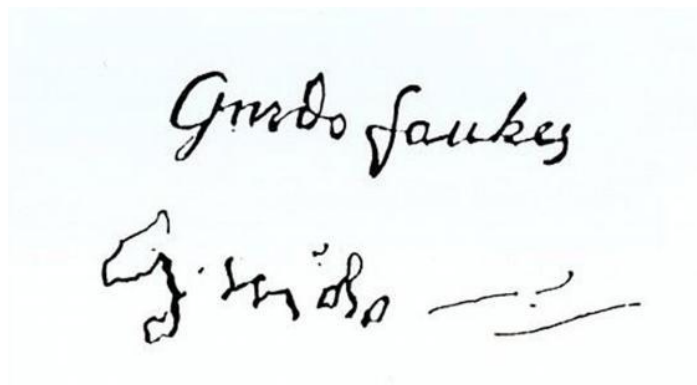 Guido faukes
Guido